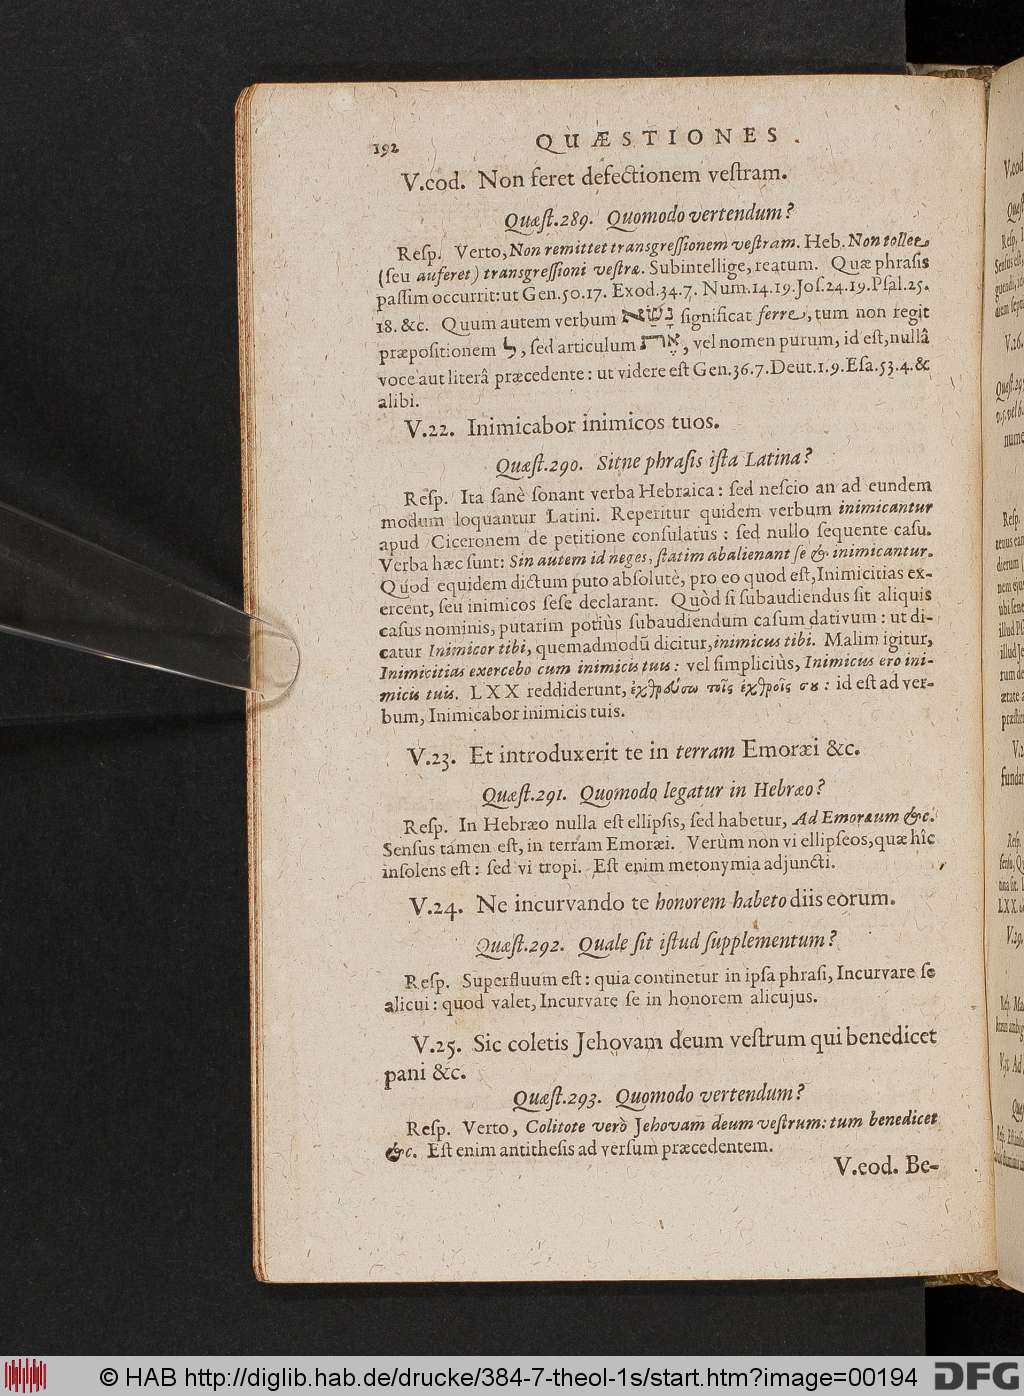 192 QUÆSTIONES.
V.cod. Non feret defectionem veſtram.
Quæſt.289. Quomodo vertendum?
Reſp. Verto, Non remittet transgreſſionem veſtram. Heb. Non tollet
(ſeu auferet) transgreſſioni veſtræ. Subintellige, reatum. Quæ phraſis
paſſim occurrit: ut Gen.50.17. Exod.34.7. Num.14.19. Joſ.24.19. Pſal.25.
18. &c. Quum autem verbum נָשָׂא ſignificat ferre, tum non regit
præpoſitionem ל, ſed articulum אֶת, vel nomen purum, id eſt, nullâ
voce aut literâ præcedente: ut videre eſt Gen.36.7. Deut.1.9. Eſa.53.4. &
alibi.
V.22. Inimicabor inimicos tuos.
Quæſt.290. Sitne phraſis iſta Latina?
Reſp. Ita ſanè ſonant verba Hebraica: ſed neſcio an ad eundem
modum loquantur Latini. Reperitur quidem verbum inimicantur
apud Ciceronem de petitione conſulatus: ſed nullo ſequente caſu.
Verba hæc ſunt: Sin autem id neges, ſtatim abalienant ſe & inimicantur.
Quod equidem dictum puto abſolutè, pro eo quod eſt, Inimicitias ex-
ercent, ſeu inimicos ſeſe declarant. Quòd ſi ſubaudiendus ſit aliquis
caſus nominis, putarim potiùs ſubaudiendum caſum dativum: ut di-
catur Inimicor tibi, quemadmodũ dicitur, inimicus tibi. Malim igitur,
Inimicitias exercebo cum inimicis tuis: vel ſimpliciùs, Inimicus ero ini-
micis tuis. LXX reddiderunt, ἐχθρεύσω τοῖς ἐχθροῖς σȣ: id eſt ad ver-
bum, Inimicabor inimicis tuis.
V.23. Et introduxerit te in terram Emoræi &c.
Quæſt.291. Quomodo legatur in Hebræo?
Reſp. In Hebræo nulla eſt ellipſis, ſed habetur, Ad Emoræum &c.
Senſus tamen eſt, in terram Emoræi. Verùm non vi ellipſeos, quæ hîc
inſolens eſt: ſed vi tropi. Eſt enim metonymia adjuncti.
V.24. Ne incurvando te honorem habeto diis eorum.
Quæſt.292. Quale ſit iſtud ſupplementum?
Reſp. Superfluum eſt: quia continetur in ipſa phraſi, Incurvare ſe
alicui: quod valet, Incurvare ſe in honorem alicujus.
V.25. Sic coletis Jehovam deum veſtrum qui benedicet
pani &c.
Quæſt.293. Quomodo vertendum?
Reſp. Verto, Colitote verò Jehovam deum veſtrum: tum benedicet
&c. Eſt enim antitheſis ad verſum præcedentem.
V.eod. Be-
© HAB http://diglib.hab.de/drucke/384-7-theol-1s/start.htm?image=00194
DFG